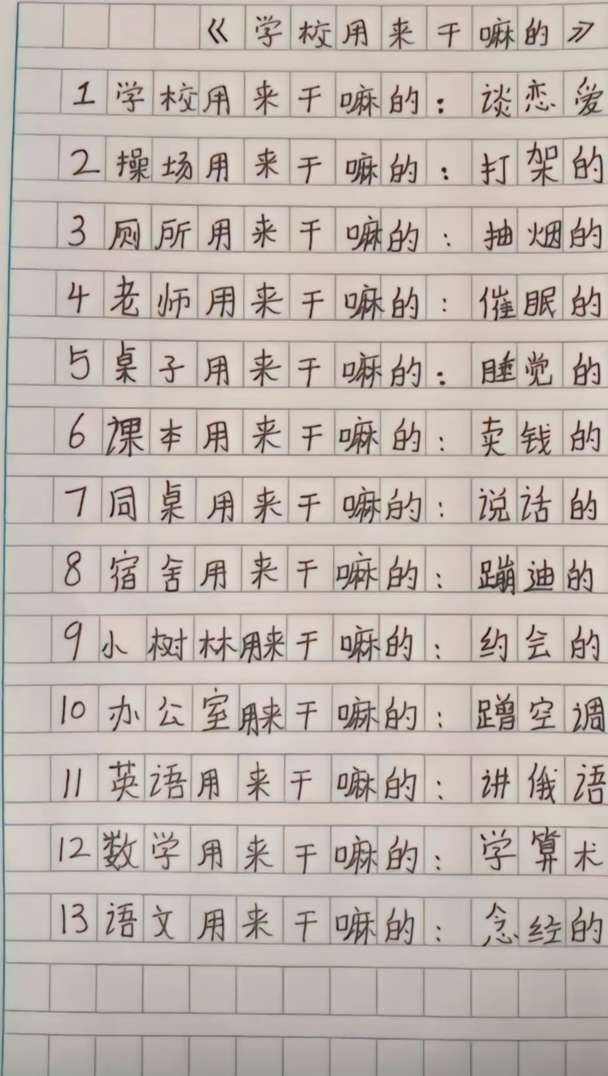 《学校用来干嘛的》
1学校用来干嘛的：谈恋爱
2操场用来干嘛的：打架的
3厕所用来干嘛的：抽烟的
4老师用来干嘛的：催眠的
5桌子用来干嘛的：睡觉的
6课本用来干嘛的：卖钱的
7同桌用来干嘛的：说话的
8宿舍用来干嘛的：蹦迪的
9小树林用来干嘛的：约会的
10办公室用来干嘛的：蹭空调
11英语用来干嘛的：讲俄语
12数学用来干嘛的：学算术
13语文用来干嘛的：念经的